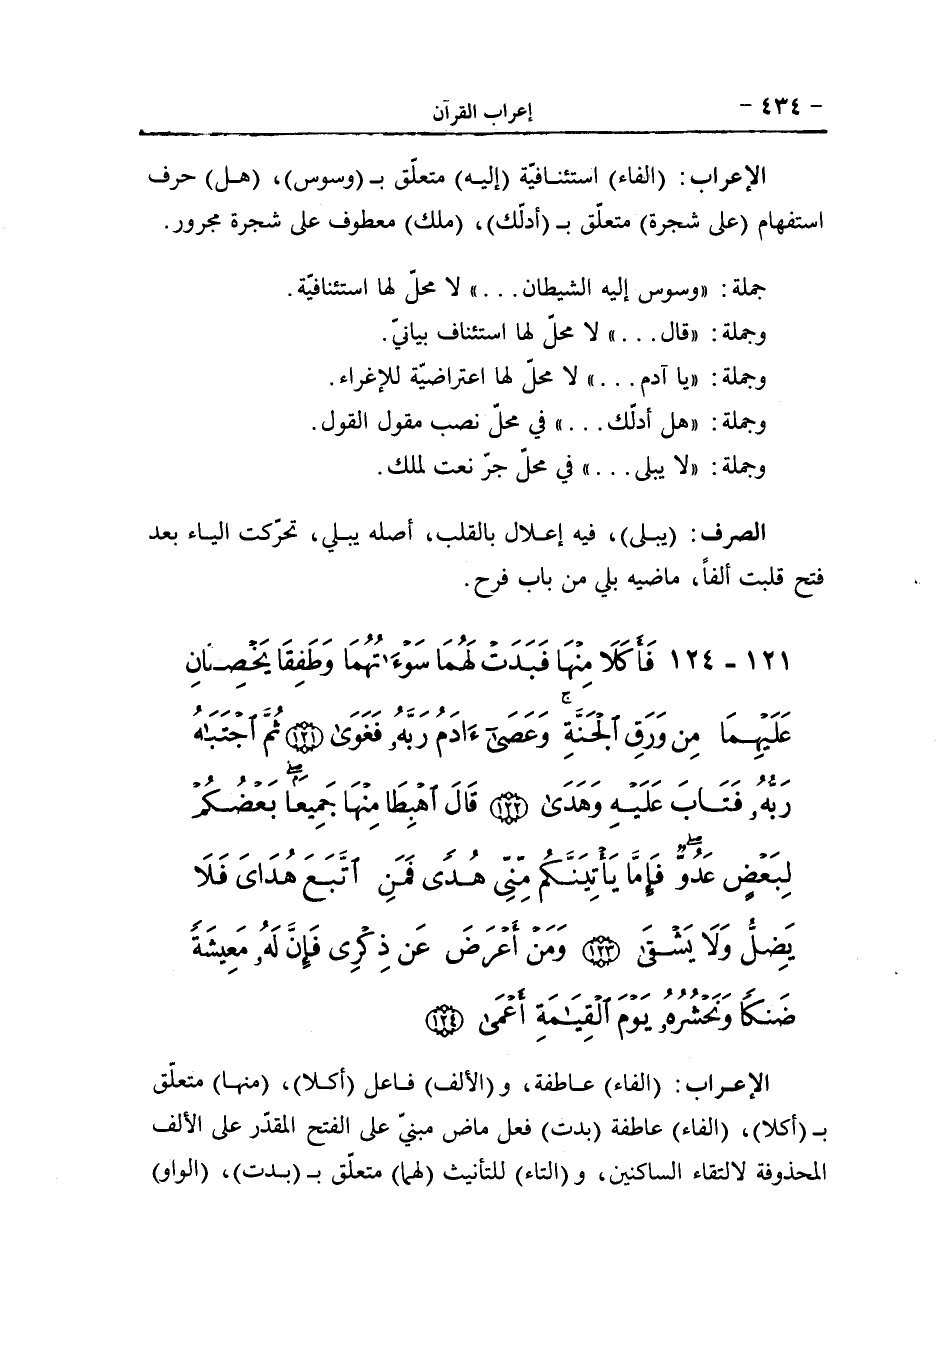 - ٤٣٤ -
إعراب القرآن
الإعراب: (الفاء) استئنافيّة (إليه) متعلّق بـ (وسوس)، (هل) حرف
استفهام (على شجرة) متعلّق بـ (أدلّك)، (ملك) معطوف على شجرة مجرور.
جملة: «وسوس إليه الشيطان...» لا محلّ لها استئنافيّة.
وجملة: «قال...» لا محلّ لها استئناف بيانيّ.
وجملة: «يا آدم...» لا محلّ لها اعتراضيّة للإغراء.
وجملة: «هل أدلّك...» في محلّ نصب مقول القول.
وجملة: «لا يبلى...» في محلّ جرّ نعت لملك.
الصرف: (يبلى)، فيه إعلال بالقلب، أصله يبلي، تحرّكت الياء بعد
فتح قلبت ألفاً، ماضيه بلي من باب فرح.
١٢١ - ١٢٤ فَأَكَلَا مِنْهَا فَبَدَتْ لَهُمَا سَوْءَٰتُهُمَا وَطَفِقَا يَخْصِفَانِ
عَلَيْهِمَا مِن وَرَقِ ٱلْجَنَّةِ ۚ وَعَصَىٰٓ ءَادَمُ رَبَّهُۥ فَغَوَىٰ ﴿١٢١﴾ ثُمَّ ٱجْتَبَٰهُ
رَبُّهُۥ فَتَابَ عَلَيْهِ وَهَدَىٰ ﴿١٢٢﴾ قَالَ ٱهْبِطَا مِنْهَا جَمِيعًۢا ۖ بَعْضُكُمْ
لِبَعْضٍ عَدُوٌّ ۖ فَإِمَّا يَأْتِيَنَّكُم مِّنِّى هُدًى فَمَنِ ٱتَّبَعَ هُدَاىَ فَلَا
يَضِلُّ وَلَا يَشْقَىٰ ﴿١٢٣﴾ وَمَنْ أَعْرَضَ عَن ذِكْرِى فَإِنَّ لَهُۥ مَعِيشَةً
ضَنكًا وَنَحْشُرُهُۥ يَوْمَ ٱلْقِيَٰمَةِ أَعْمَىٰ ﴿١٢٤﴾
الإعراب: (الفاء) عاطفة، و(الألف) فاعل (أكلا)، (منها) متعلّق
بـ (أكلا)، (الفاء) عاطفة (بدت) فعل ماض مبنيّ على الفتح المقدّر على الألف
المحذوفة لالتقاء الساكنين، و(التاء) للتأنيث (لهما) متعلّق بـ (بدت)، (الواو)